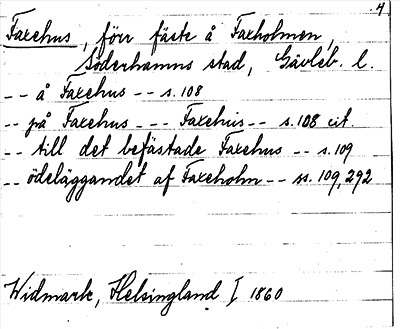 4
Faxehus, förr fäste å Faxholmen,
Söderhamns stad, Gävleb. l.
-- å Faxehus -- s. 108
-- på Faxehus --- Faxehus -- s. 108 cit
-- till det befästade Faxehus -- s. 109
-- ödeläggandet af Faxeholm -- ss. 109, 292
Widmark, Helsingland I 1860